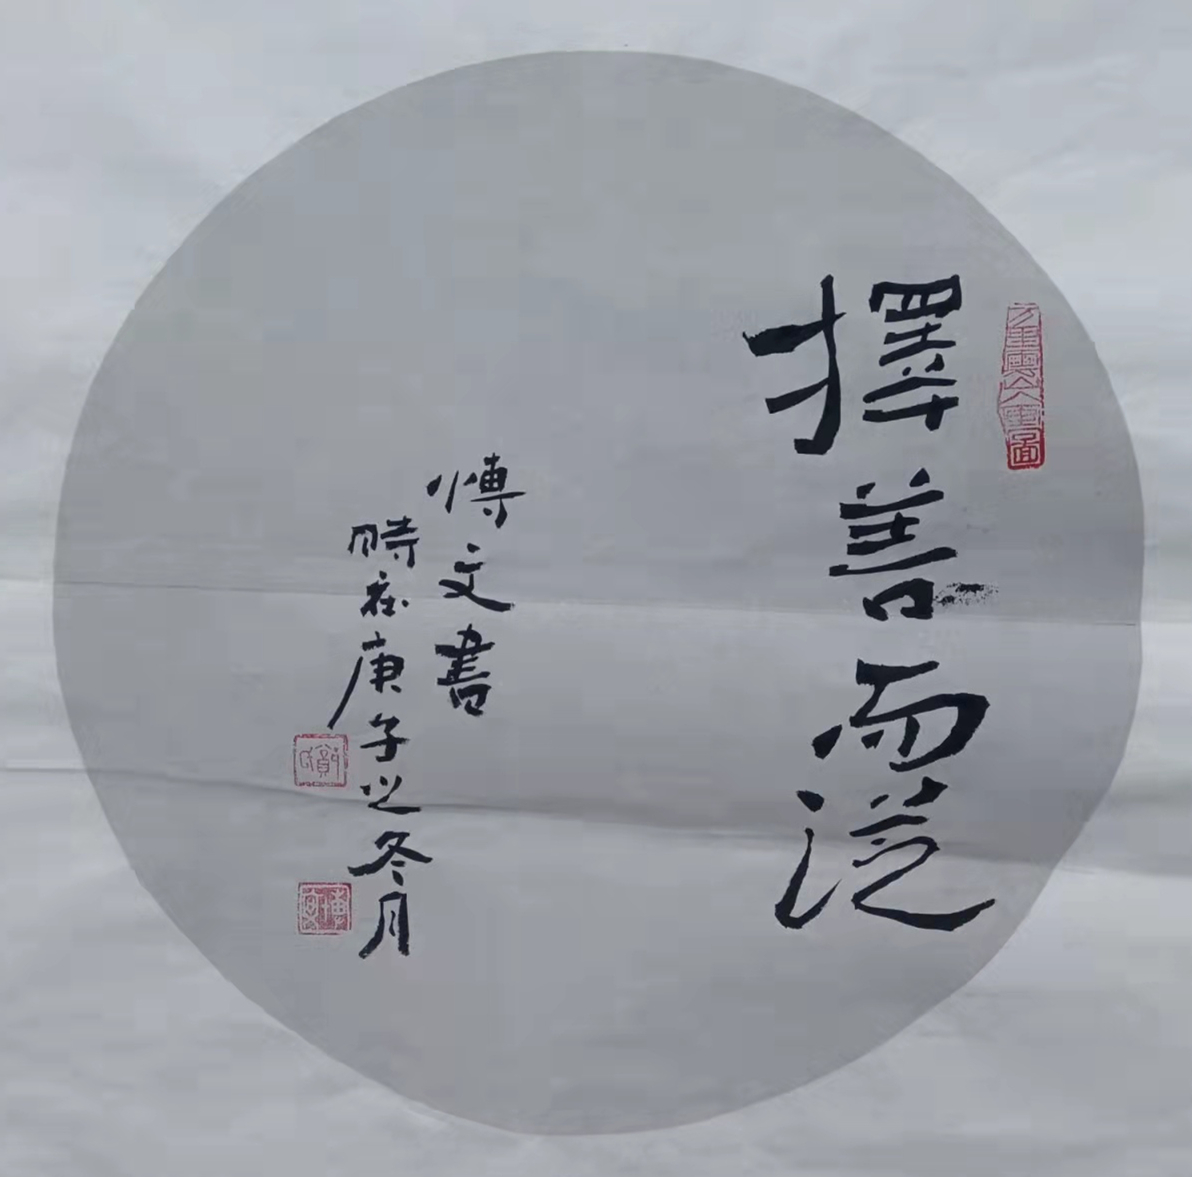 擇善而從
博文書
時在庚子之冬月